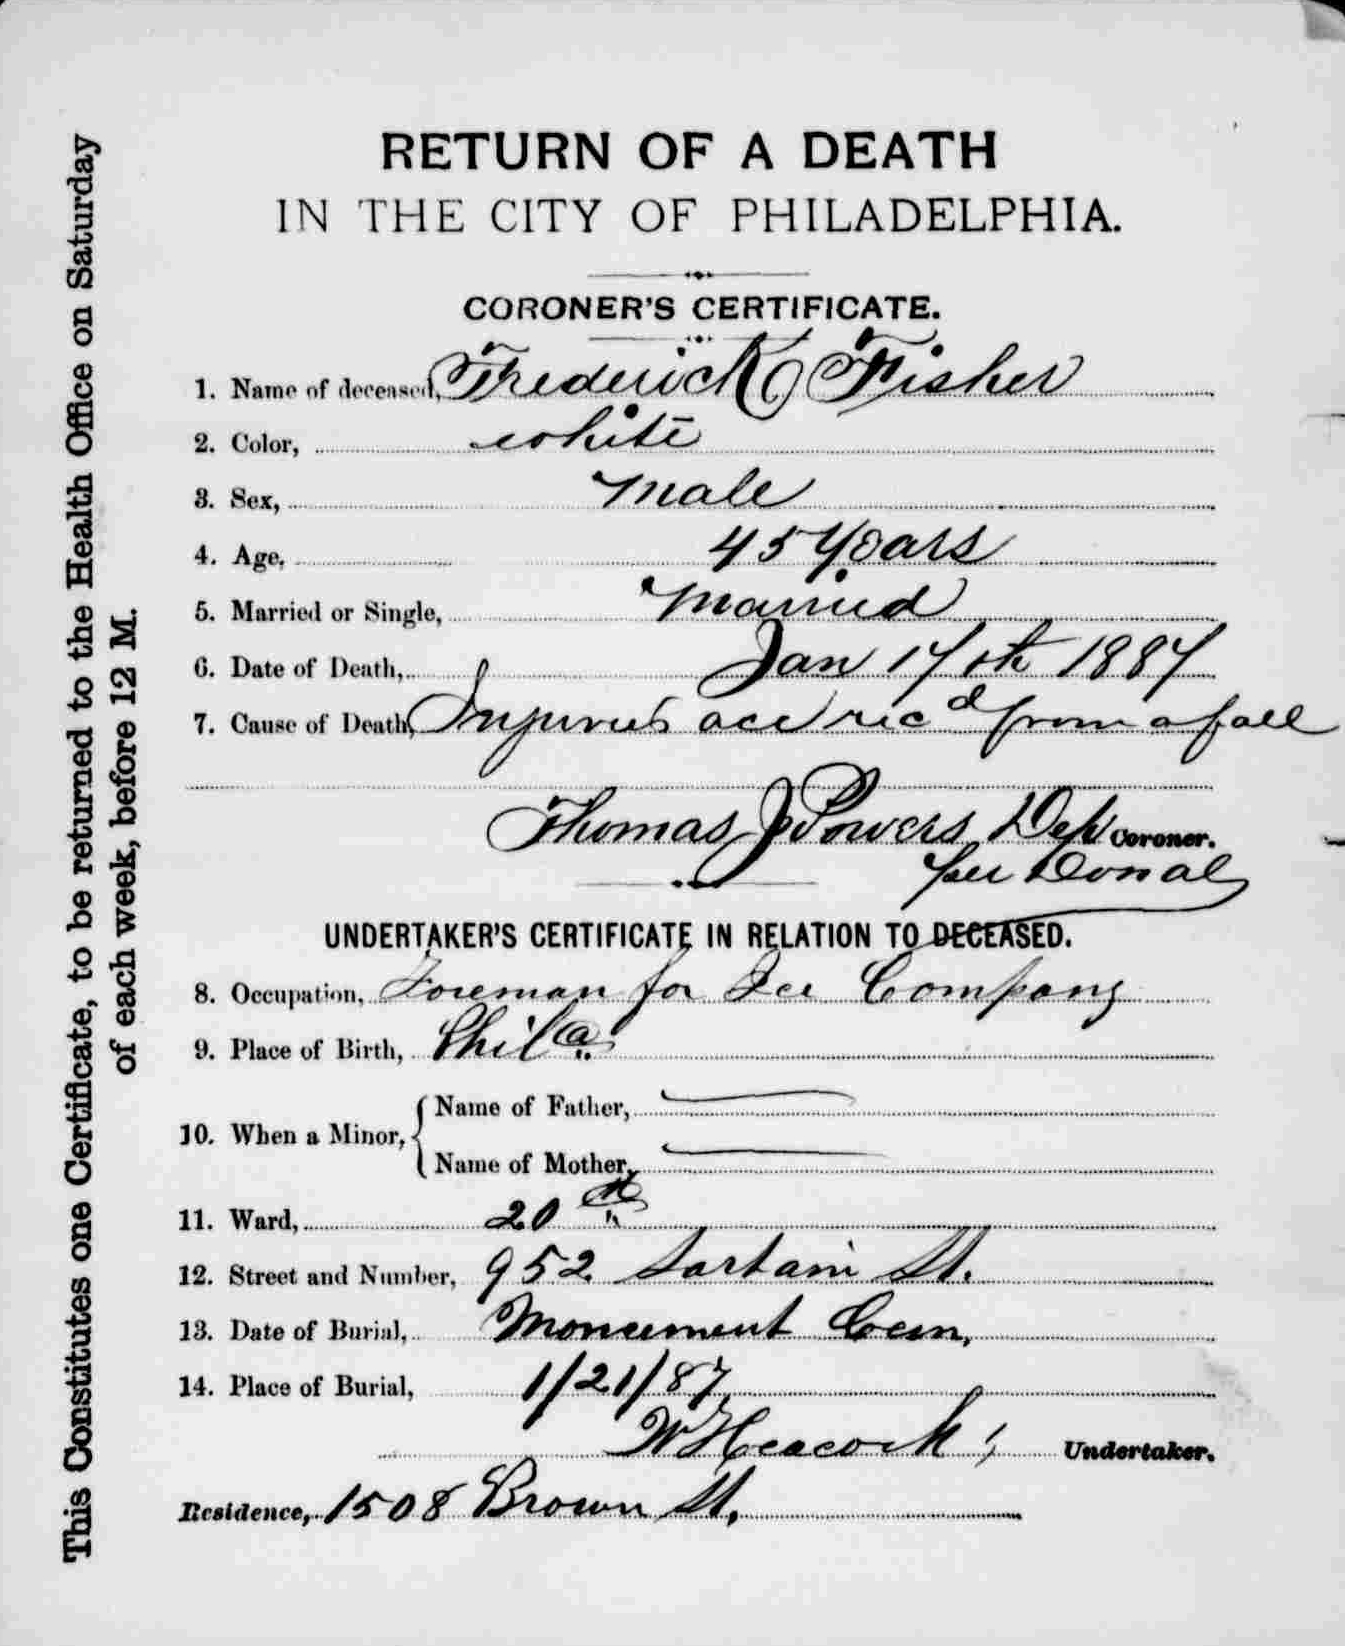 RETURN OF A DEATH
IN THE CITY OF PHILADELPHIA.
CORONER'S CERTIFICATE.
1. Name of deceased, Frederick Fisher
2. Color, white
3. Sex, Male
4. Age, 45 Years
5. Married or Single, Married
6. Date of Death, Jan 17th 1887
7. Cause of Death, Injuries acc rec d from a fall
Thomas J Powers Dep Coroner.
per Donal
UNDERTAKER'S CERTIFICATE IN RELATION TO DECEASED.
8. Occupation, Foreman for Ice Company
9. Place of Birth, Phila
10. When a Minor, { Name of Father,
Name of Mother,
11. Ward, 20th
12. Street and Number, 952 Sartain St.
13. Date of Burial, Monument Cem,
14. Place of Burial, 1/21/87
W Heacock, Undertaker.
Residence, 1508 Brown St.
This Constitutes one Certificate, to be returned to the Health Office on Saturday
of each week, before 12 M.